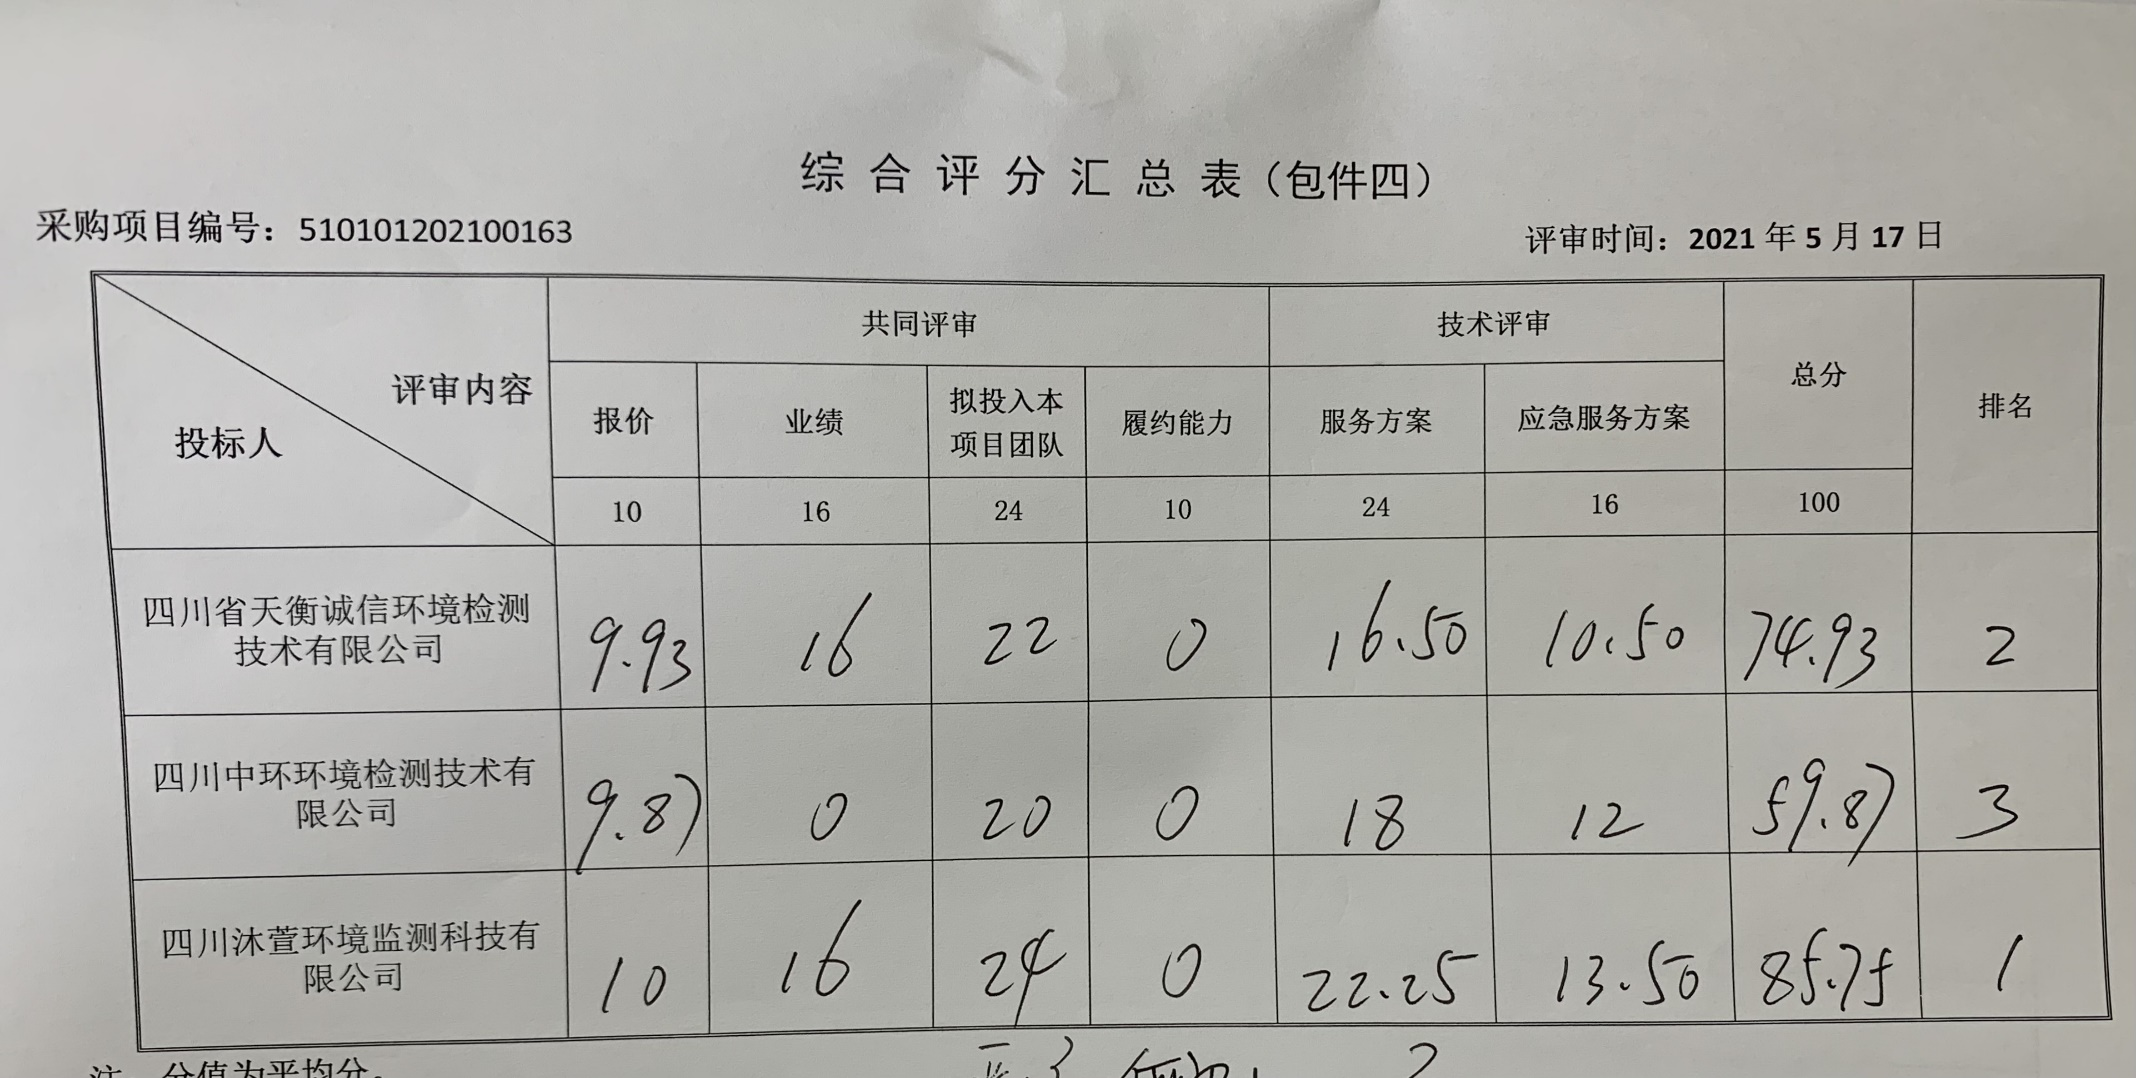 综合评分汇总表（包件四）
采购项目编号：510101202100163
评审时间：2021年5月17日
评审内容
投标人
共同评审
技术评审
总分
排名
报价
业绩
拟投入本
项目团队
履约能力
服务方案
应急服务方案
10
16
24
10
24
16
100
四川省天衡诚信环境检测
技术有限公司
9.93
16
22
0
16.50
10.50
74.93
2
四川中环环境检测技术有
限公司
9.87
0
20
0
18
12
59.87
3
四川沐萱环境监测科技有
限公司
10
16
24
0
22.25
13.50
85.75
1
注：分值为平均分。